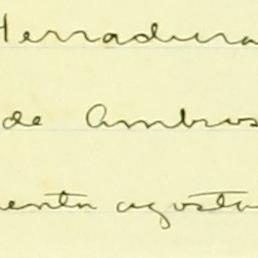 Herradura
de Ambros
venta agosta